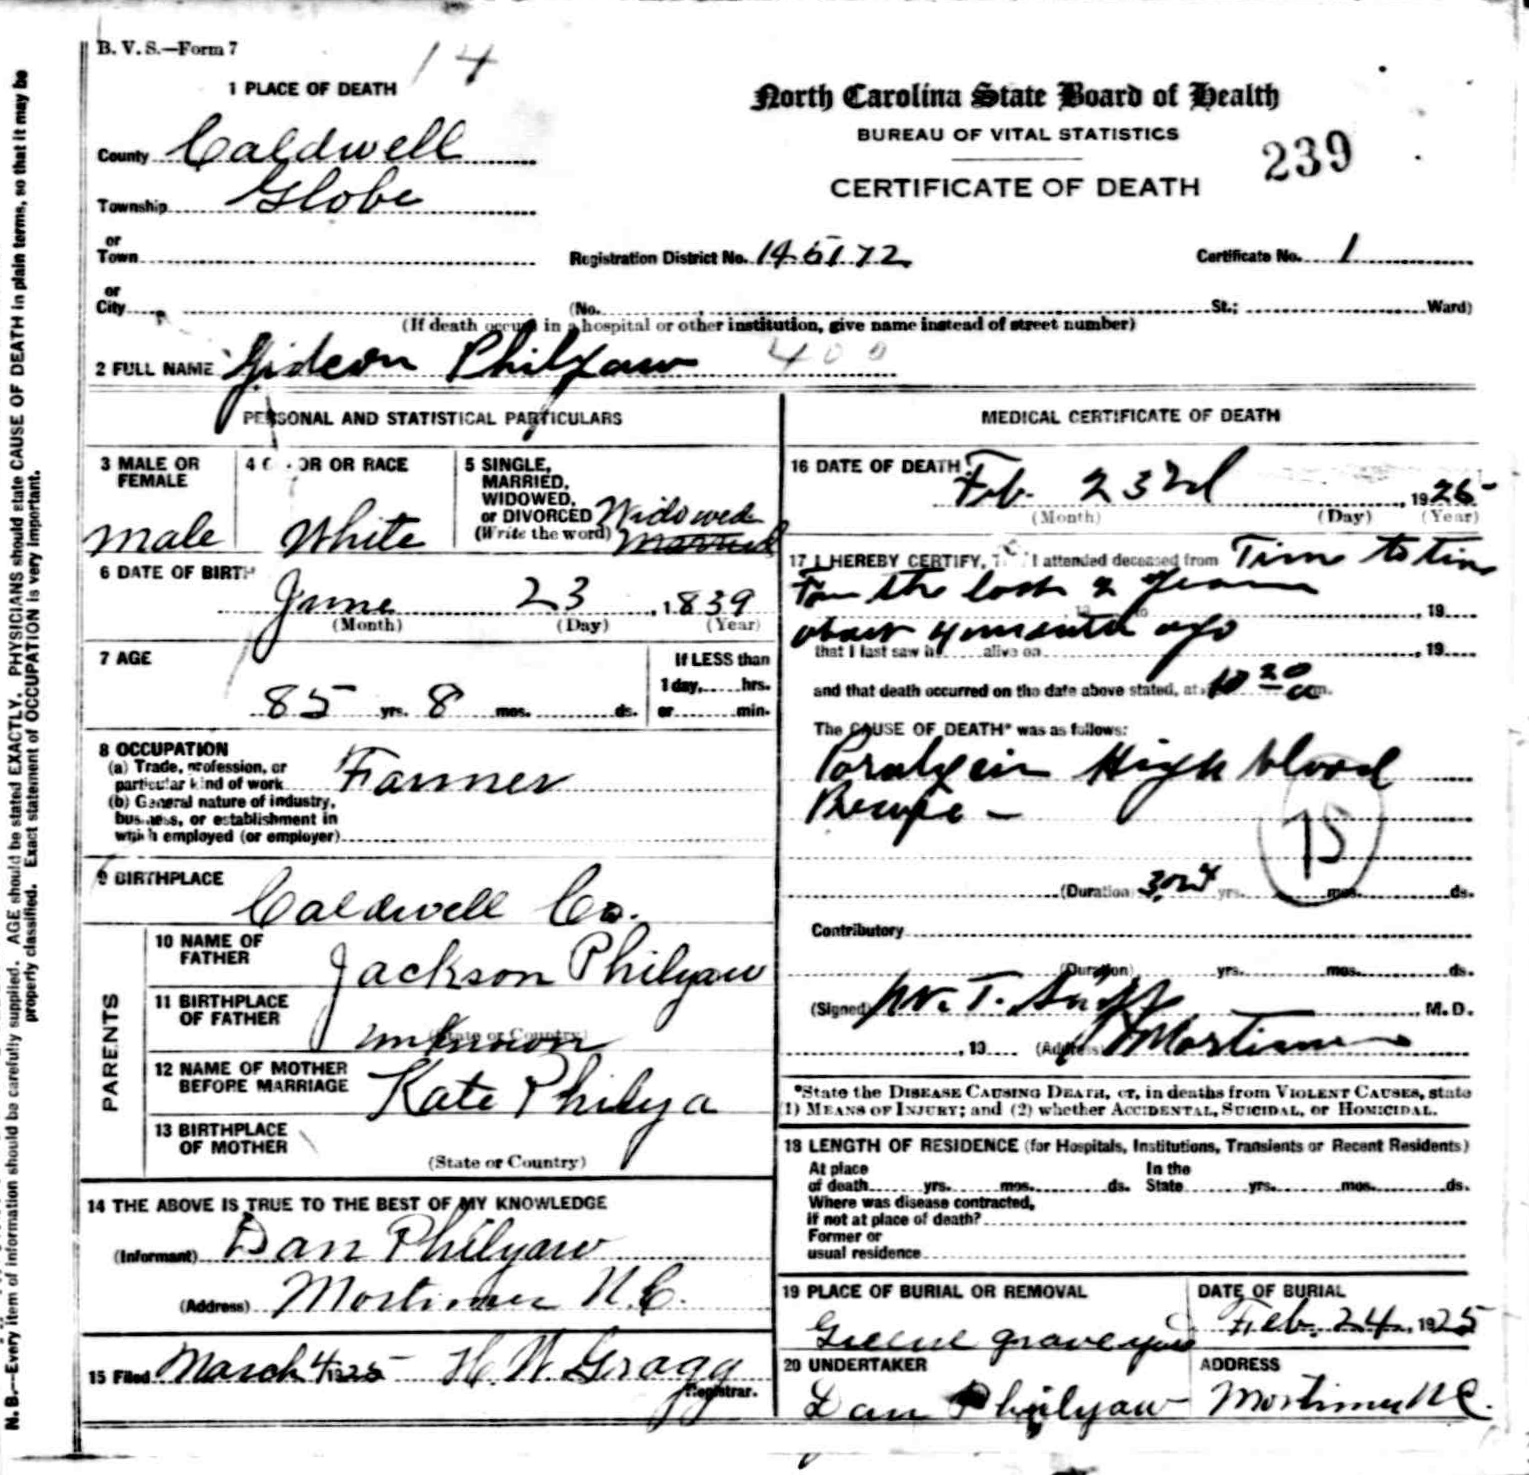 B. V. S.—Form 7
14
1 PLACE OF DEATH
County Caldwell
Township Globe
or
Town
or
City
North Carolina State Board of Health
BUREAU OF VITAL STATISTICS
239
CERTIFICATE OF DEATH
Registration District No. 14-5172
Certificate No. 1
(No. St.; Ward)
(If death occurs in a hospital or other institution, give name instead of street number)
2 FULL NAME Gideon Philyaw 400
PERSONAL AND STATISTICAL PARTICULARS
3 MALE OR FEMALE
male
4 COLOR OR RACE
White
5 SINGLE,
MARRIED,
WIDOWED,
or DIVORCED
(Write the word)
Widowed
Married
6 DATE OF BIRTH
June 23, 1839
(Month) (Day) (Year)
7 AGE
85 yrs. 8 mos. ds.
If LESS than
1 day, hrs.
or min.
8 OCCUPATION
(a) Trade, profession, or
particular kind of work Farmer
(b) General nature of industry,
business, or establishment in
which employed (or employer)
9 BIRTHPLACE
Caldwell Co.
PARENTS
10 NAME OF FATHER
Jackson Philyaw
11 BIRTHPLACE OF FATHER
(State or Country)
unknown
12 NAME OF MOTHER BEFORE MARRIAGE
Kate Philya
13 BIRTHPLACE OF MOTHER
(State or Country)
14 THE ABOVE IS TRUE TO THE BEST OF MY KNOWLEDGE
(Informant) Dan Philyaw
(Address) Mortimer N.C.
15 Filed March 4, 1925 H. W. Gragg
Registrar.
MEDICAL CERTIFICATE OF DEATH
16 DATE OF DEATH
Feb. 23rd, 1925
(Month) (Day) (Year)
17 I HEREBY CERTIFY, That I attended deceased from Time to time
For the last 2 years, 19
about 4 months ago
that I last saw h alive on, 19
and that death occurred on the date above stated, at 10 20 a m.
The CAUSE OF DEATH* was as follows:
Paralysis High blood
75
(Duration) 3 or 4 yrs. mos. ds.
Contributory
(Duration) yrs. mos. ds.
(Signed) W. T. M. D.
, 19 (Address) Mortimer
*State the DISEASE CAUSING DEATH, or, in deaths from VIOLENT CAUSES, state
1) MEANS OF INJURY; and (2) whether ACCIDENTAL, SUICIDAL, or HOMICIDAL.
18 LENGTH OF RESIDENCE (for Hospitals, Institutions, Transients or Recent Residents)
At place
of death yrs. mos. ds.
In the
State yrs. mos. ds.
Where was disease contracted,
if not at place of death?
Former or
usual residence
19 PLACE OF BURIAL OR REMOVAL
Greene graveyard
DATE OF BURIAL
Feb. 24, 1925
20 UNDERTAKER
Dan Philyaw
ADDRESS
Mortimer N.C.
N. B.—Every item of information should be carefully supplied. AGE should be stated EXACTLY. PHYSICIANS should state CAUSE OF DEATH in plain terms, so that it may be
properly classified. Exact statement of OCCUPATION is very important.